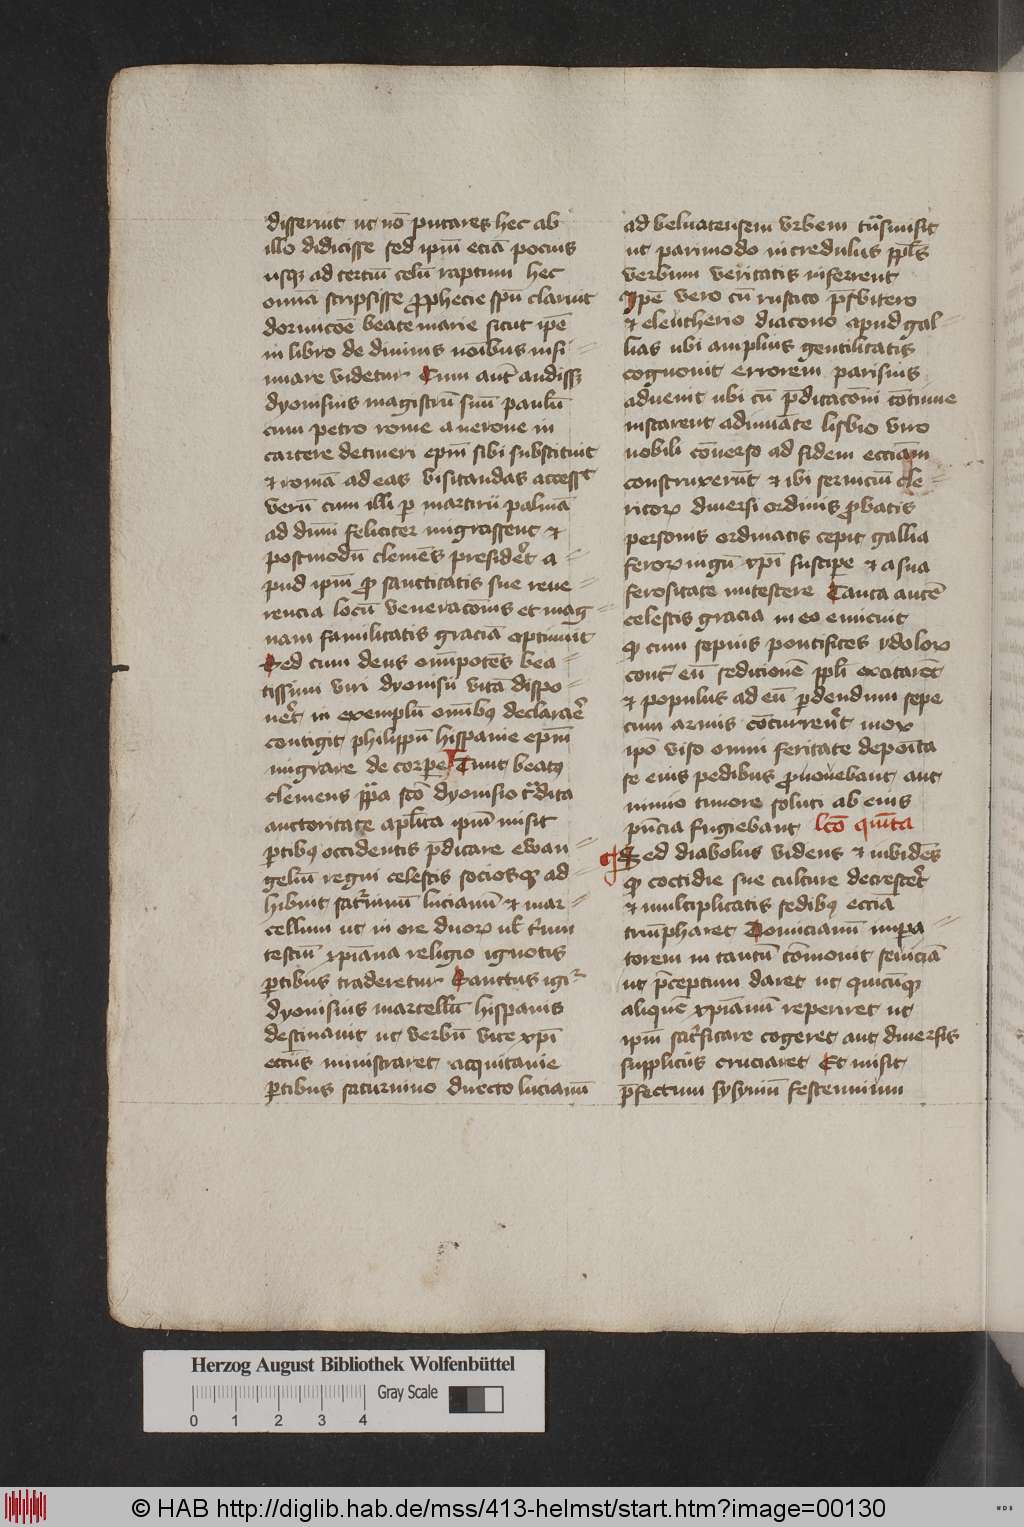 disseruit ut nō putares hec ab
illo didicisse sed ipm̄ eciā pocius
usqꝫ ad terciū celū raptum hec
omīa scripsisse ꝓphecie spū claruit
dormicōe beate marie sicut ipē
in libro de diuinis noībus insi=
nuare videtur Cum aut̄ audissꝫ
dyonisius magistrū suū paulū
cum petro rome a nerone in
carcere detineri epm̄ sibi substituit
⁊ romā ad eas visitandas access̄t
verū cum illi ꝑ martirii palmā
ad dn̄m feliciter migrassent ⁊
postmodū clemēs presider̄t a=
pud ipm̄ ꝓ sanctitatis sue reue=
rencia locū veneracōnis et mag=
nam familitatis graciā optinuit
Sed cum deus om̄ipotēs bea=
tissimi viri dyonisii vitā dispo=
ner̄t in exemplū om̄ibꝰ declarar̄e
contigit philippū hispanie epm̄
migrare de corpore Tunc beatꝰ
clemens pp̄a scō dyonisio tr̄dita
auctoritate apl̄ica ipm̄ misit
ꝑtibꝰ occidentis p̄dicare ewan=
geliū regni celestis sociosqꝫ ad=
hibuit lucianū ⁊ mar=
cellum ut in ore duoꝝ ul̄ t̄ium
testiū xp̄iana religio ignotis
ꝑtibus traderetur Sanctus igi᷑
dyonisius marcellū hispanis
destinauit ut verbū vite xp̄i
eccīis ministraret acquitanie
ꝑtibus saturnino directo lucianū
ad beluacensem vrbem tn̄smisit
ut parimodo incredulis ppl̄is
verbum veritatis inferrent
Ipē vero cū rustico pr̄sbitero
⁊ eleutherio diacono apud gal=
lias ubi amplius gentilitatis
cognouit errorem parisius
aduenit ubi cū p̄dicacōni cōtinue
instarent adiuuāte lisbio viro
nobili cōuerso ad fidem eccīam
construxerūt ⁊ ibi seruiciū cle=
ricoꝝ diuersi ordinis ꝓbatis
personis ordinatis cepit gallia
ferox iugū xp̄i suscipere ⁊ a sua
ferositate mitescere Tanta autē
celestis gracia in eo emicuit
qꝫ cum sepius pontifices ydoloꝝ
cont̄ eū sedicionē ppl̄i excitarēt
⁊ populus ad eū ꝑdendum sepe
cum armis cōcurrer̄t mox
ipō viso omni feritate deposīta
se eius pedibus ꝓuoluebant aut
nimio timore soluti ab eius
pn̄cia fugiebant lcō quīta
Sed diabolus videns ⁊ inuidēs
qꝫ cottidie sue culture decrescer̄t
⁊ multiplicatis sedibꝰ eccīa
triūpharet Domicianū impera=
torem in tantū cōmouit seuiciā
ut p̄ceptum daret ut quicūqꝫ
aliquē xp̄ianū reperiret ut
ipm̄ sacr̄ficare cogeret aut diuersis
suppliciis cruciaret Et misit
p̄fectum sysynniū festenninum
Herzog August Bibliothek Wolfenbüttel
0 1 2 3 4
Gray Scale
© HAB http://diglib.hab.de/mss/413-helmst/start.htm?image=00130